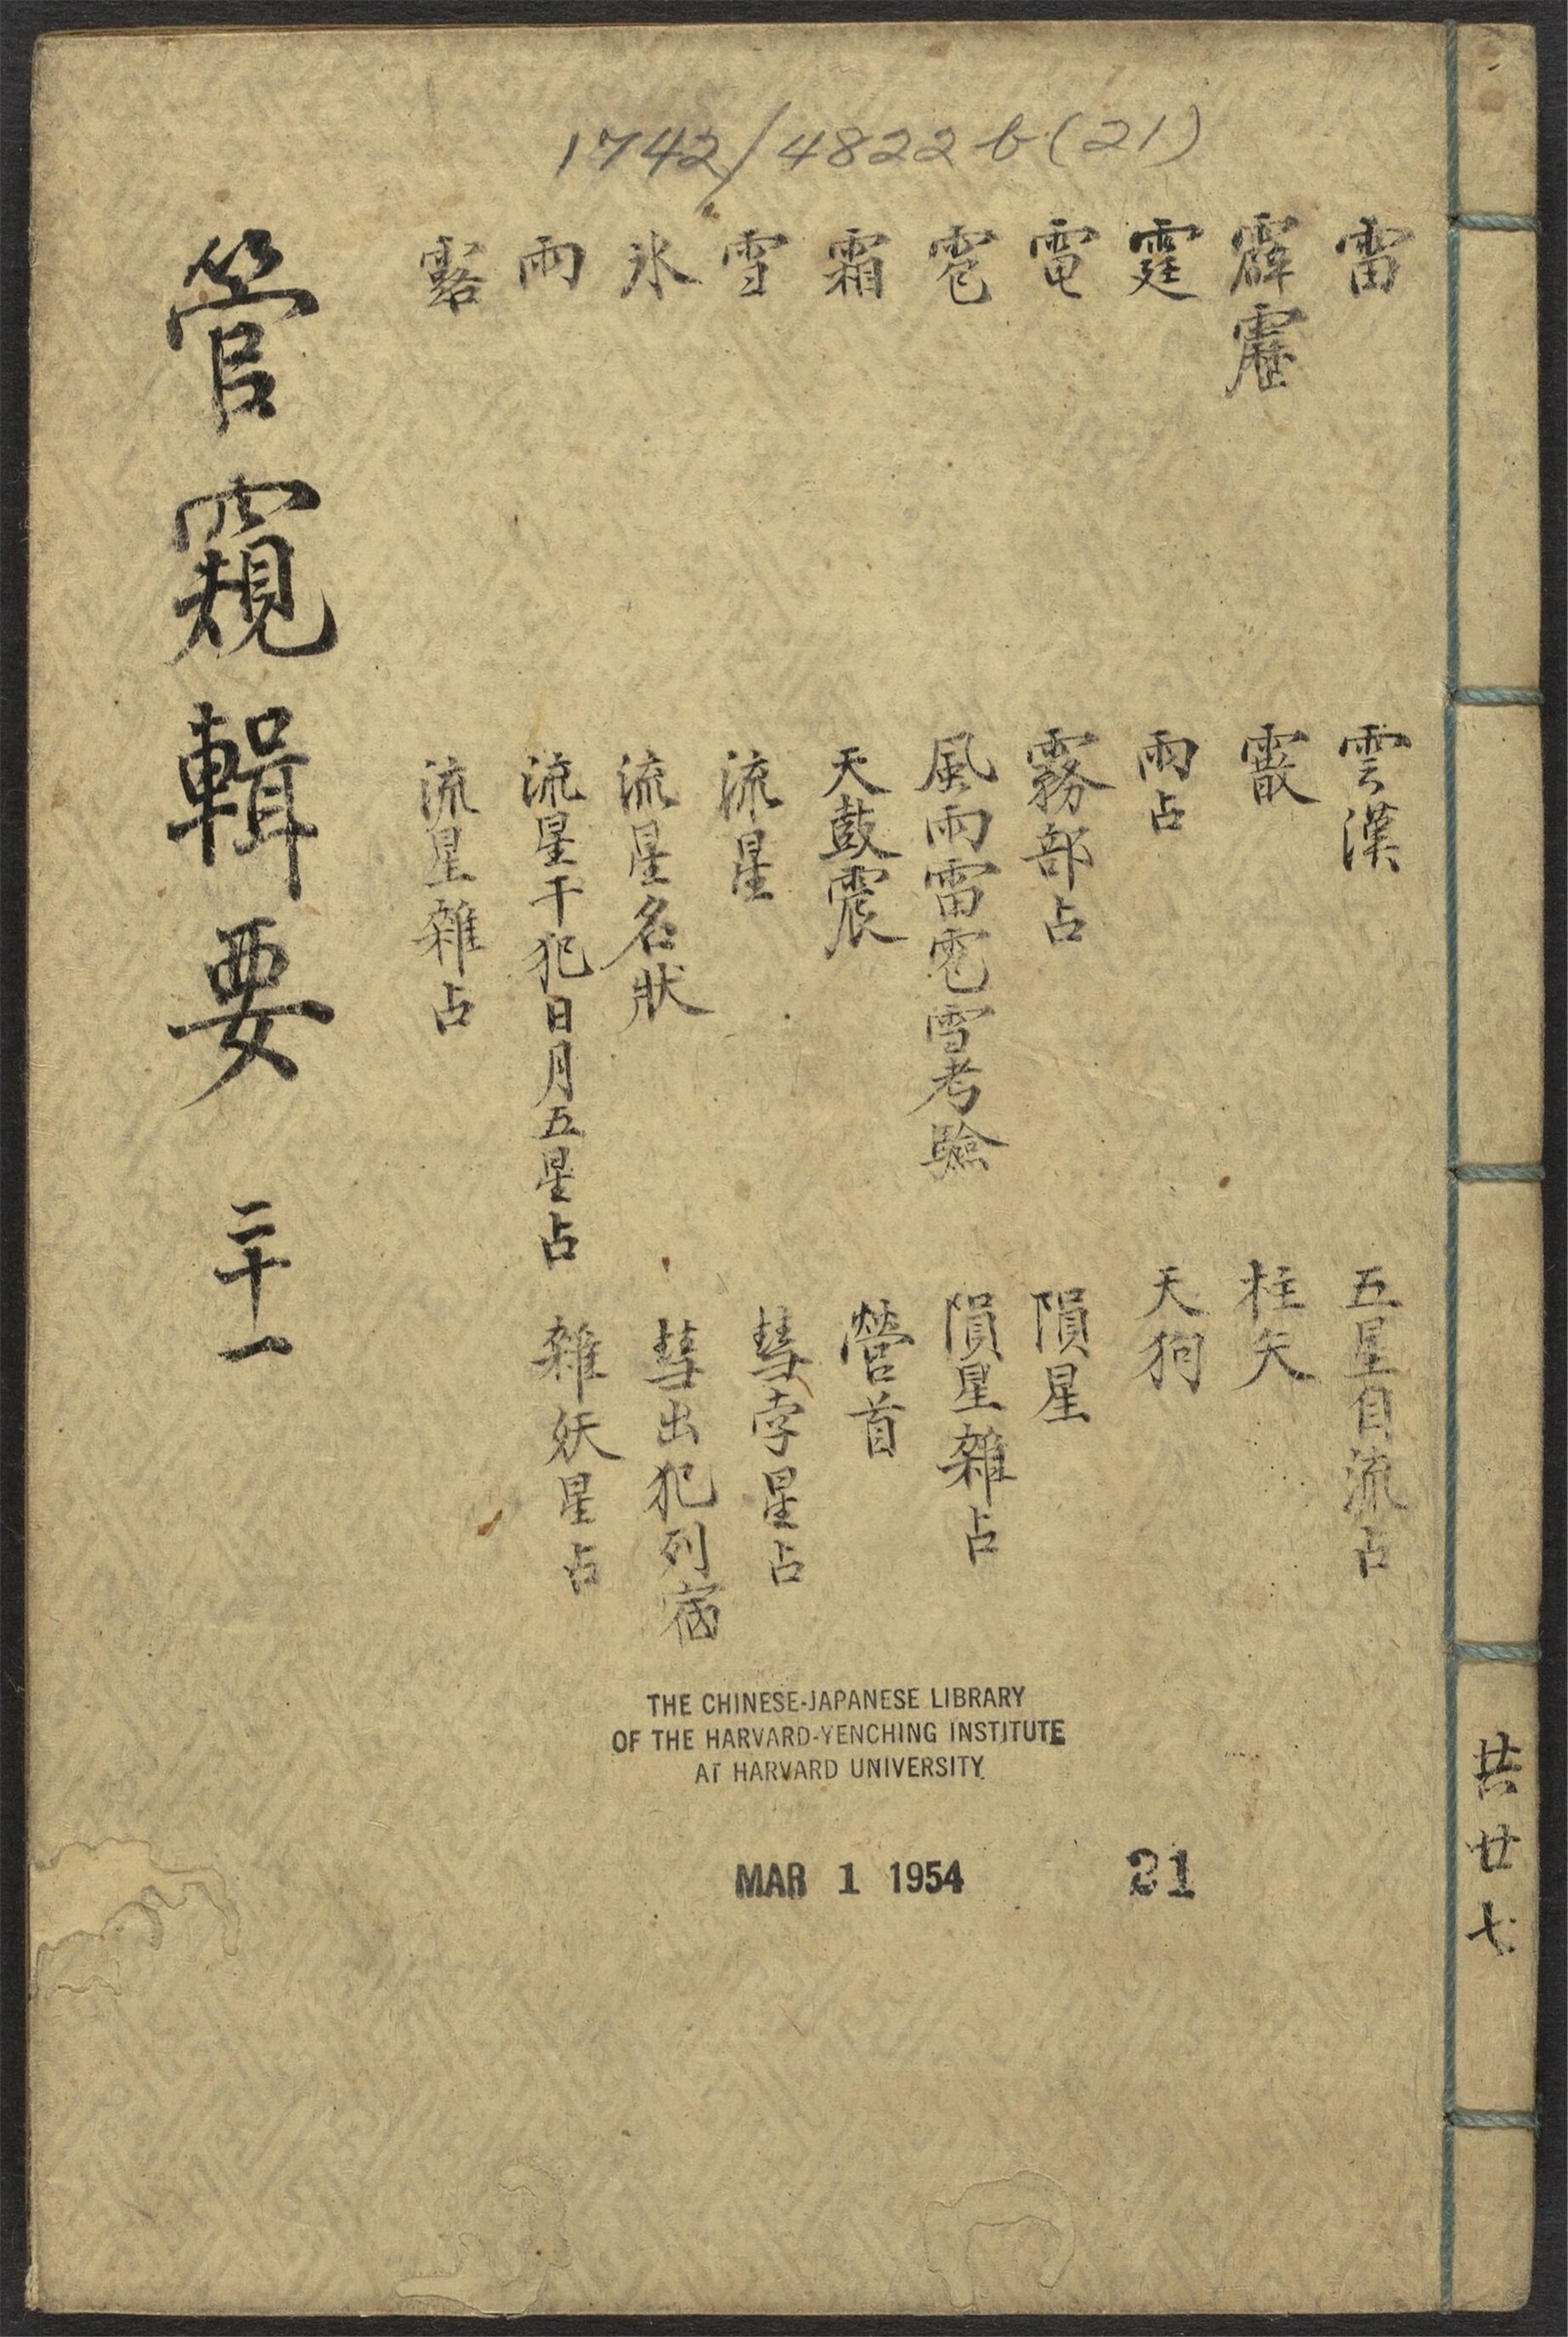 1742/4822 b (21)
雷
霹靂
霆
電
雹
霜
雪
氷
雨
露
雲漢
霰
雨占
霧部占
風雨雷雹雪考驗
天鼓震
流星
流星名狀
流星干犯日月五星占
流星雜占
五星自流占
枉矢
天狗
隕星
隕星雜占
營首
彗孛星占
彗出犯列宿
雜妖星占
管窺輯要 二十一
共廿七
THE CHINESE-JAPANESE LIBRARY
OF THE HARVARD-YENCHING INSTITUTE
AT HARVARD UNIVERSITY
MAR 1 1954
21